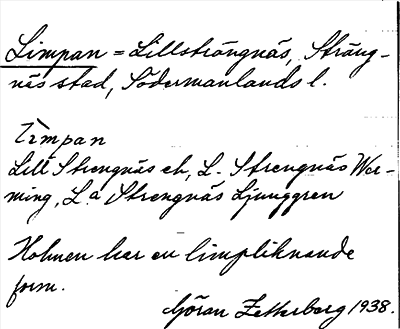 Limpan = Lillsträngnäs, Sträng-
näs stad, Södermanlands l.
Limpan
Lill Strengnäs ek, L. Strengnäs Wer-
ming, L.a Strengnäs Ljunggren
Holmen har en limpliknande
form.
Göran Zetterberg 1938.